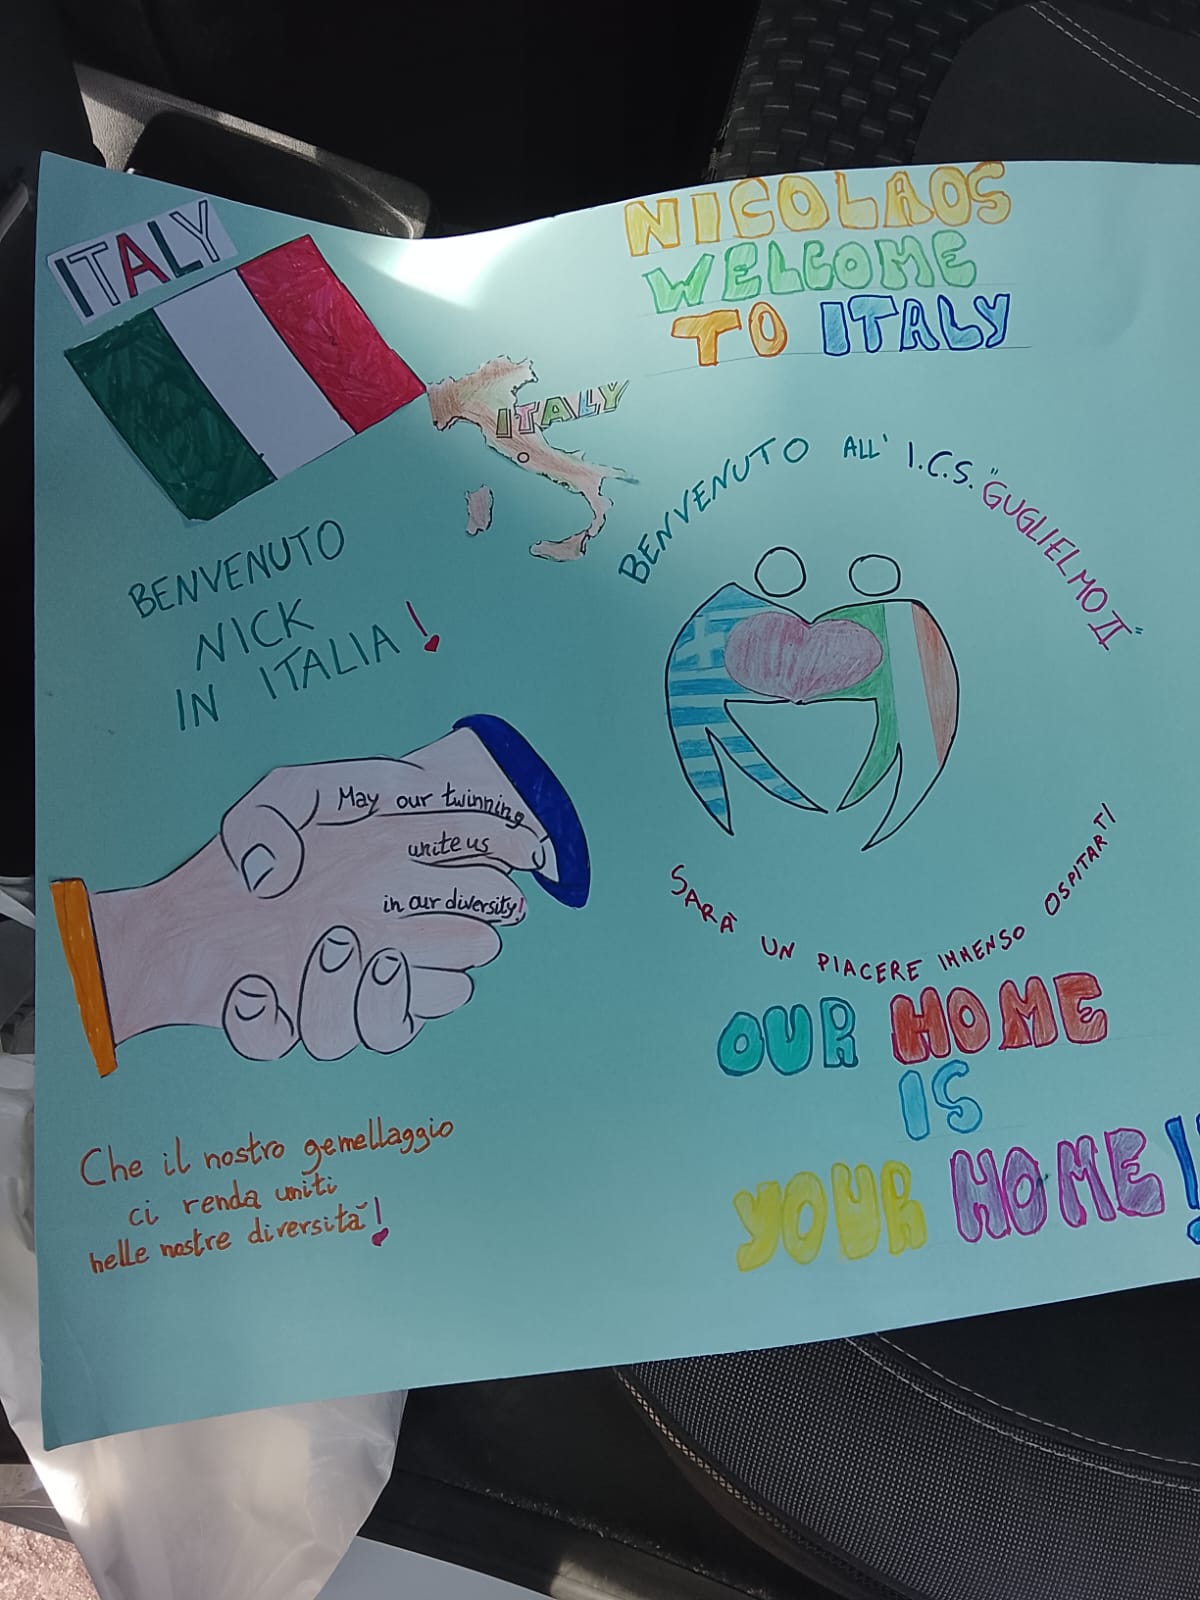 ITALY
NICOLAOS
WELCOME
TO ITALY
ITALY
BENVENUTO
NICK
IN ITALIA!
BENVENUTO ALL' I.C.S. "GUGLIELMO II"
May our twinning
unite us
in our diversity!
SARÀ UN PIACERE IMMENSO OSPITARTI
OUR HOME
IS
YOUR HOME!!
Che il nostro gemellaggio
ci renda uniti
nelle nostre diversità!